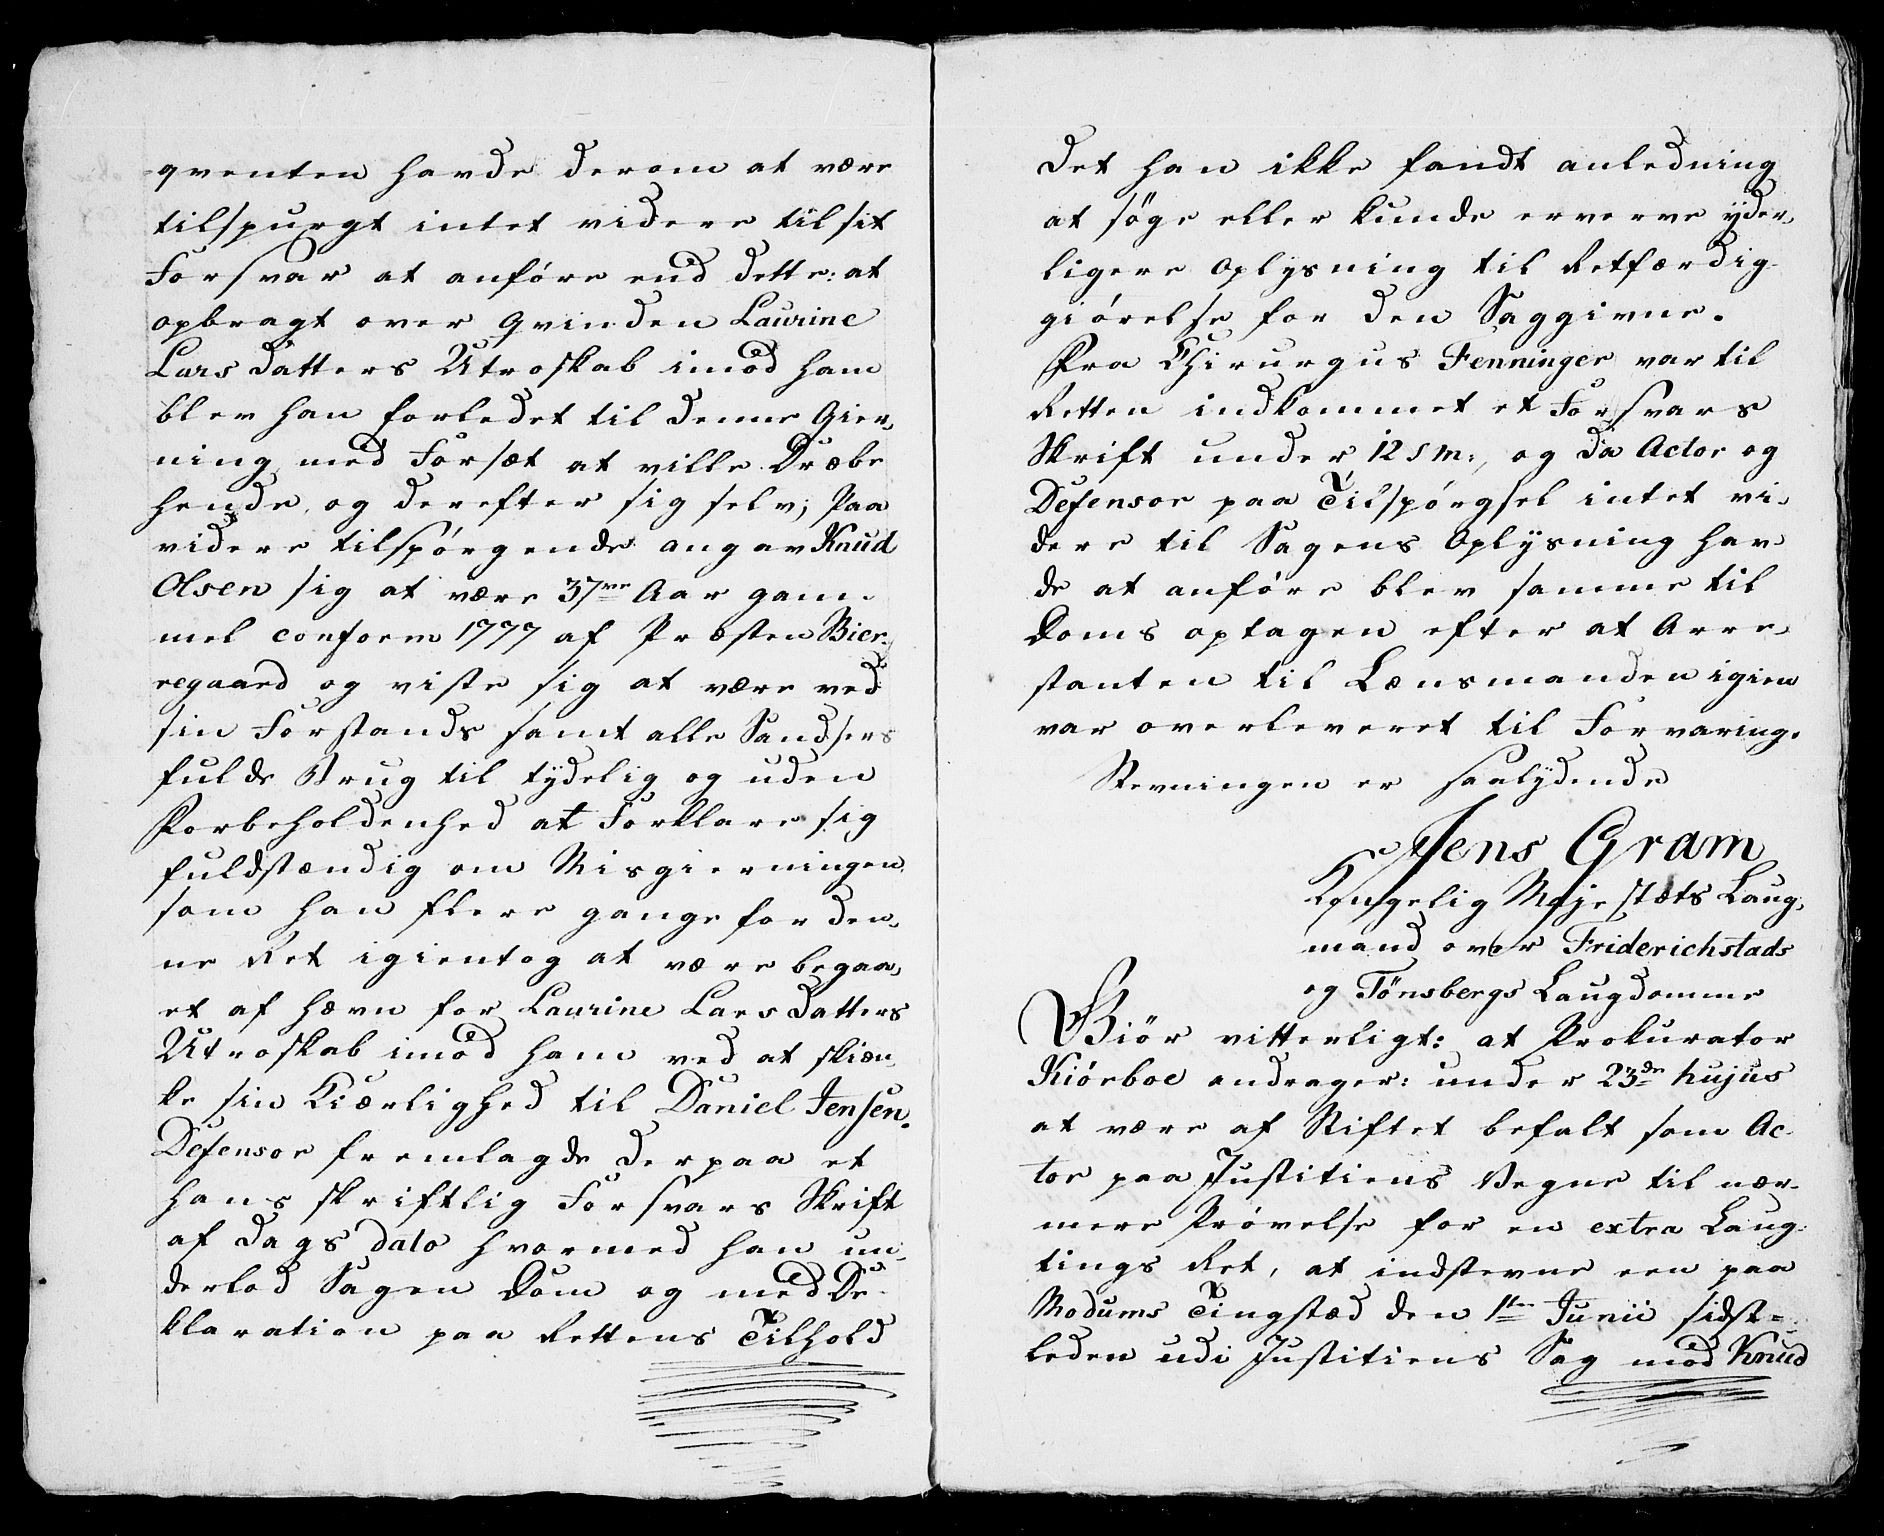 qventen havde derom at være
tilspurgt intet videre til sit
Forsvar at anføre end dette: at
opbragt over Qvinden Laurine
Lars Datters Utroskab imod ham
blev han forledet til denne Gier,
ning med Forsæt at ville Dræbe
hende, og derefter sig selv; Paa
videre tilspørgende angav Knud
Olsen sig at være 37ve Aar gam-
mel conform 1777 af Præsten Bier-
regaard og viste sig at være ved
sin Forstands samt alle Sandsers
fulde Brug til tydelig og uden
Forbeholdenhed at Forklare sig
fuldstændig om Misgierningen
som han flere gange for den,
ne Ret igientog at være begaa,
et af Hævn for Laurine Lars Datters
Utroskab imod ham ved at skiæn,
ke sin Kiærlighed til Daniel Jensen.
Defensor fremlagde derpaa et
hans skriftlig Forsvars Skrift
af Dags dato hvormed han un,
derlod Sagen Dom og med De-
klaration paa Rettens Tilhold
det han ikke fandt anledning
at søge eller kunde erverve yder,
ligere Oplysning til Retfærdig-
giørelse for den Saggivne.
Fra Chirurgus Fenninger var til
Retten indkommet et Forsvars
Skrift under 12 s m:, og da Actor og
Defensor paa Tilspørgsel intet vi,
dere til Sagens Oplysning hav
de at anføre blev samme til
Doms optagen efter at Arre,
stanten til Lænsmanden igien
var overleveret til Forvaring.
Stevningen er saalydende
Jens Gram
Kongelig Majestæts Laug,
mand over Friderichstads
og Tønsbergs Laugdomme
Giør vitterligt: at Prokurator
Kiørboe andrager: under 23de hujus
at være af Stiftet befalt som Ac-
tor paa Justitiens Vegne til nær-
mere Prøvelse for en extra Laug-
tings Ret, at indstevne een paa
Modums Tingstæd den 1ten Junii sidst=
leden udi Justitiens Sag mod Knud